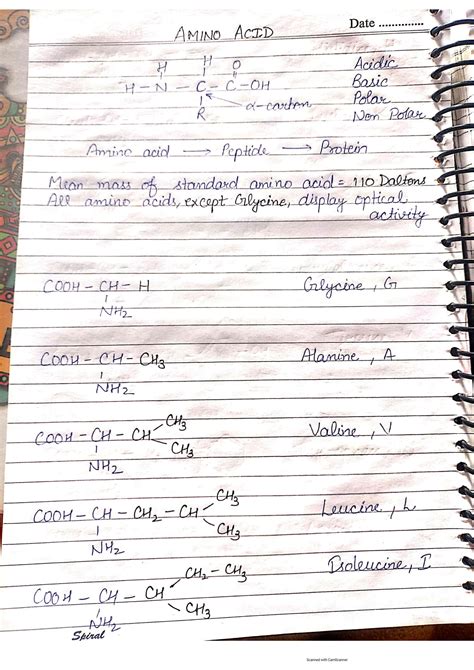 Date ..............
AMINO ACID
H H O
H - N - C - C - OH
R
α-carbon
Acidic
Basic
Polar
Non Polar
Amino acid → Peptide → Protein
Mean mass of standard amino acid = 110 Daltons
All amino acids, except Glycine, display optical
activity
COOH - CH - H Glycine, G
NH2
COOH - CH - CH3 Alanine, A
NH2
CH3
COOH - CH - CH Valine, V
CH3
NH2
CH3
COOH - CH - CH2 - CH Leucine, L
CH3
NH2
Isoleucine, I
CH2 - CH3
COOH - CH - CH
CH3
NH2
Spiral
Scanned with CamScanner